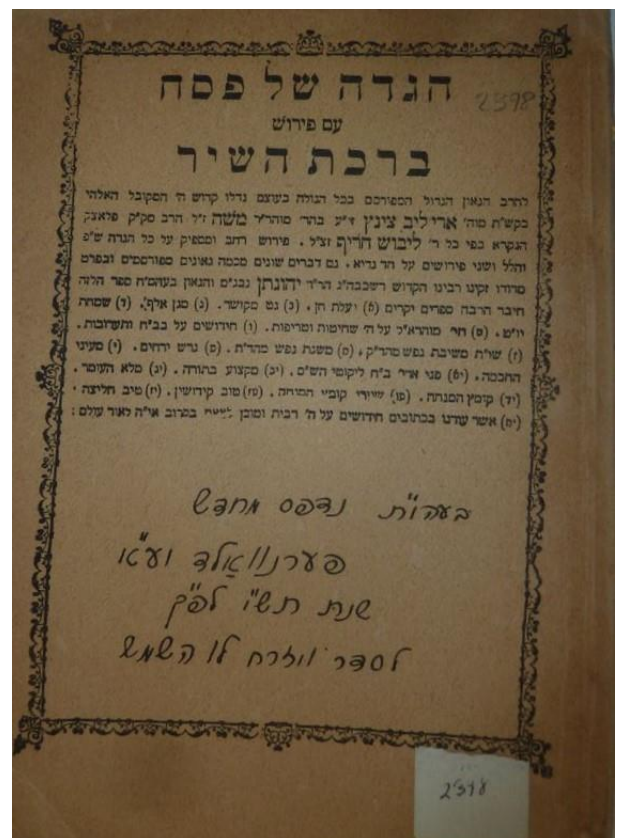 הגדה של פסח
2398
עם פירוש
ברכת השיר
להרב הגאון הגדול המפורסם בכל הגולה בעוצם גדלו קדוש ה' המקובל האלהי
בקש"ת מוה' ארי' ליב צינץ זי"ע בהר' מוהר"ר משה ז"ל הרב מק"ק פלאצק
הנקרא בפי כל ר' ליבוש חריף זצ"ל. פירוש רחב ומספיק על כל הגדה ש"פ
והלל ושני פירושים על חד גדיא. גם דברים שונים מכמה גאונים מפורסמים ובפרט
מדודו זקינו רבינו הקדוש רשכבה"ג הר"ר יהונתן נבג"ם והגאון בעהמ"ח ספר הלזה
חיבר הרבה ספרים יקרים (א) יעלת חן. (ב) גט מקושר. (ג) מגן אלף. (ד) שמחת
יו"ט. (ה) חי' מוהרא"ל על ה' שחיטות וטריפות. (ו) חידושים על בב"ח ותערובות.
(ז) שו"ת משיבת נפש מהד"ק. (ח) משבת נפש מהד"ת. (ט) גרש ירחים. (י) מעיני
החכמה. (יא) פני ארי' ב"ח ליקוטי הש"ס. (יב) מקצוע בתורה. (יג) מלא העומר.
(יד) קומץ המנחה. (טו) שיורי קומץ המנחה. (טז) טוב קידושין. (יז) טיב חליצה.
(יח) אשר עודנו בכתובים חידושים על ה' רבית ומוכן לצאת בקרוב אי"ה לאור עולם:
בעהי"ת נדפס מחדש
פערנוואַלד וע"א
שנת תש"ו לפ"ק
לסדר ויזרח לו השמש
2398